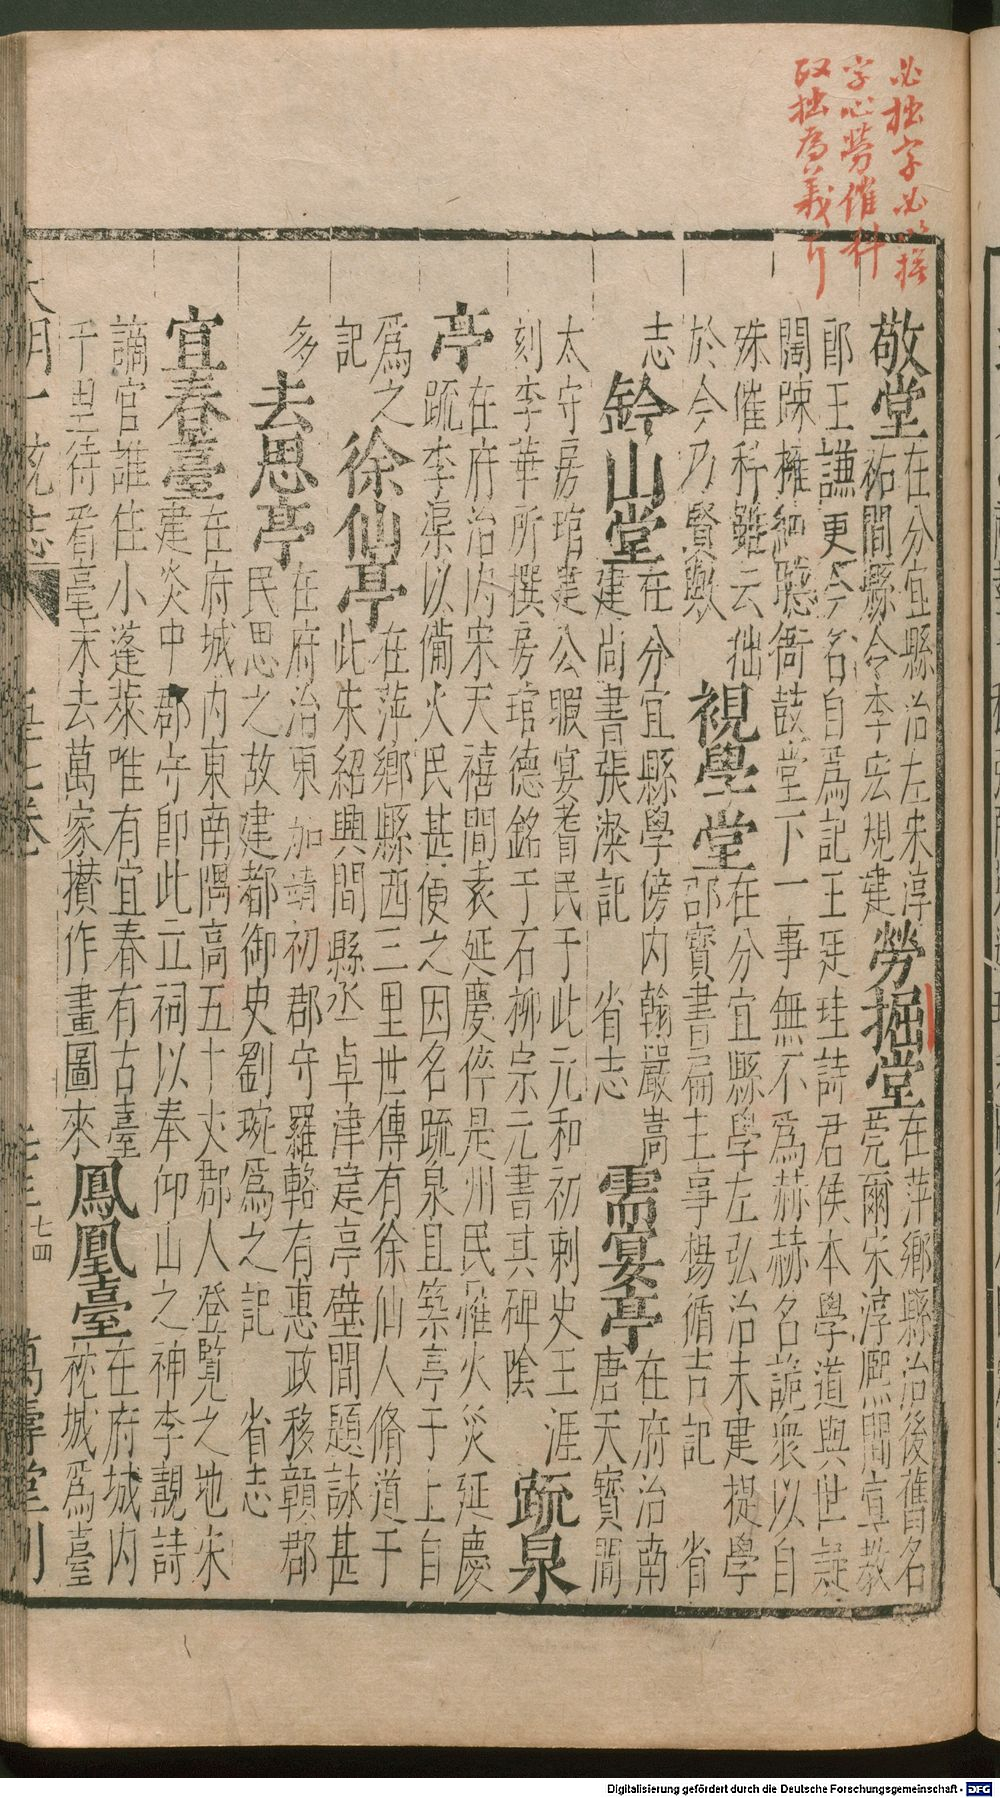 必拙字必以撰
字心勞催科
政拙為義
敬堂在分宜縣治左宋淳祐間縣令李宏規建勞掘堂在萍鄉縣治後舊名莞爾宋淳熙間宣教
郎王謙更今名自爲記王廷珪詩君侯本學道與世疑
闊踈擁𥿄聽衙鼓堂下一事無不爲赫赫名詭衆以自
殊催科雖云拙
於今乃賢歟視學堂在分宜縣學左弘治未建提學邵寶書扁主事楊循吉記 省
志鈐山堂在分宜縣學傍内翰嚴嵩建尚書張灤記 省志需宴亭在府治南唐天寶間
太守房琯建公暇宴耆民于此元和初刺史王涯
刻李華所撰房琯德銘于石柳宗元書其碑陰疏泉
亭在府治内宋天禧間袁延慶倅是州民罹火災延慶疏李渠以備火民甚便之因名疏泉且築亭于上自
爲之
記徐仙亭在萍鄉縣西三里世傳有徐仙人脩道于此朱紹興間縣丞卓津建亭壁間題詠甚
多去思亭在府治東加靖初郡守羅輅有惠政移贛郡民思之故建都御史劉琬爲之記 省志
宜春臺在府城内東南隅高五十丈郡人登覽之地宋建炎中郡守卽此立祠以奉仰山之神李覯詩
謫官誰住小蓬萊唯有宜春有古臺
千里待看毫末去萬家攅作畫圖來鳳凰臺在府城内袱城爲臺
大明一統志
七四
萬壽堂刊
Digitalisierung gefördert durch die Deutsche Forschungsgemeinschaft - DFG